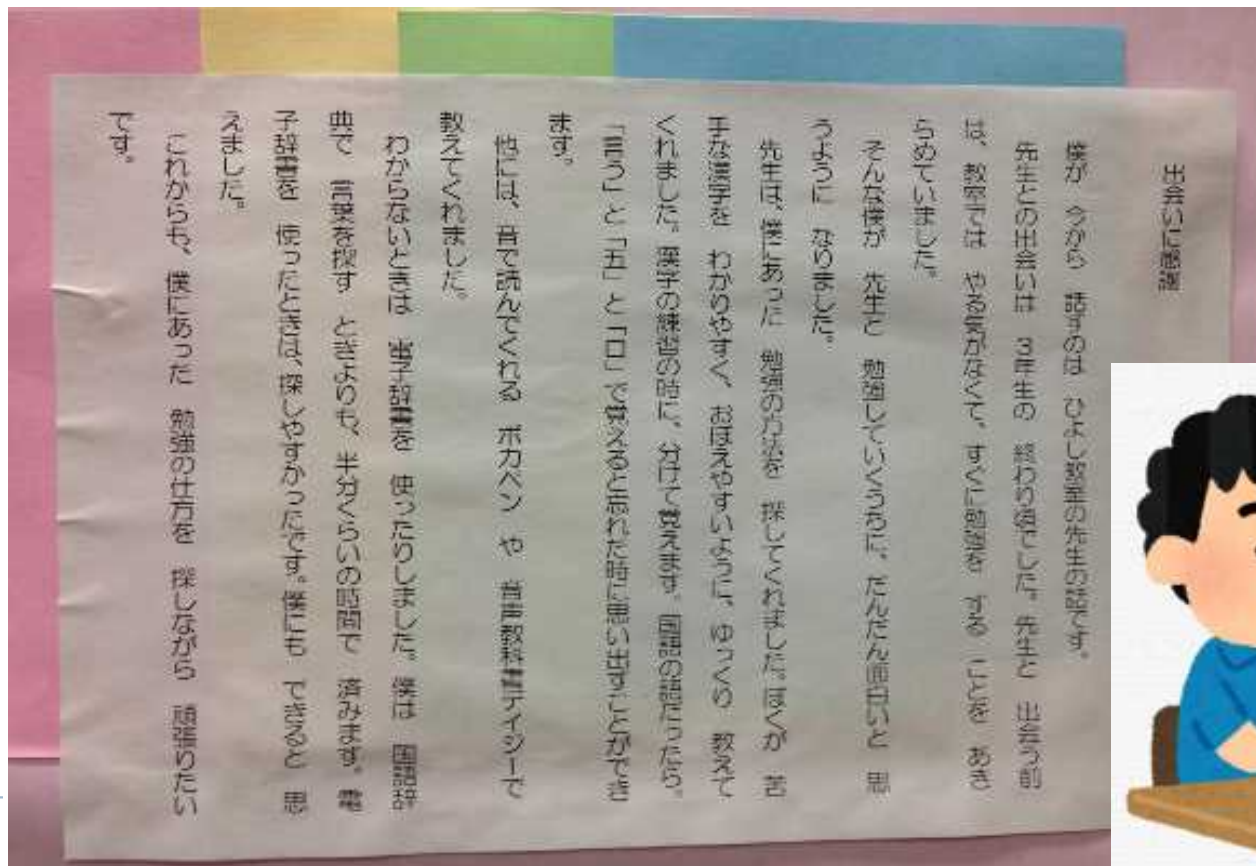 出会いに感謝
僕が 今から 話すのは ひよし教室の先生の話です。
先生との出会いは 3年生の 終わり頃でした。先生と 出会う前
は、教室では やる気がなくて、すぐに勉強を する ことを あき
らめていました。
そんな僕が 先生と 勉強していくうちに、だんだん面白いと 思
うように なりました。
先生は、僕にあった 勉強の方法を 探してくれました。ぼくが 苦
手な漢字を わかりやすく、おぼえやすいように、ゆっくり 教えて
くれました。漢字の練習の時に、分けて覚えます。国語の語だったら、
「言う」と「五」と「口」で覚えると忘れた時に思い出すことができ
ます。
他には、音で読んでくれる ボカペン や 音声教科書デイジーで
教えてくれました。
わからないときは 電子辞書を 使ったりしました。僕は 国語辞
典で 言葉を探す ときよりも、半分くらいの時間で 済みます。電
子辞書を 使ったときは、探しやすかったです。僕にも できると 思
えました。
これからも、僕にあった 勉強の仕方を 探しながら 頑張りたい
です。